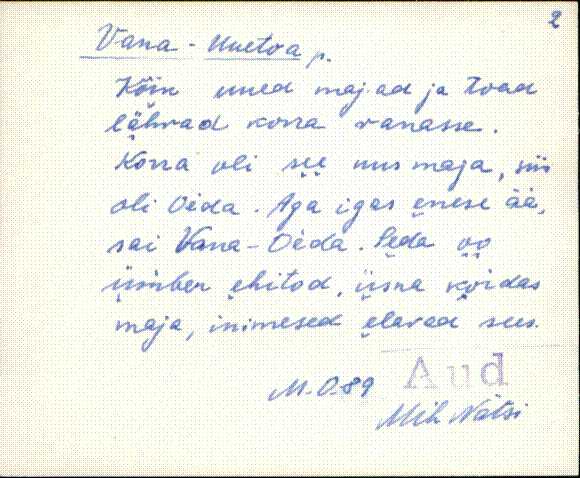 2
Vana-Uuetoa p.
Kõik uued majad ja toad
lähvad korra vanasse.
Korra oli see uus maja, siis
oli Oėda. Aga igas enese ää,
sai Vana-Oėda. Seda oo
ümber ehitod, üsna kõidas
maja, inimesed elavad sees.
M.O.89
Aud
Mih Nätsi